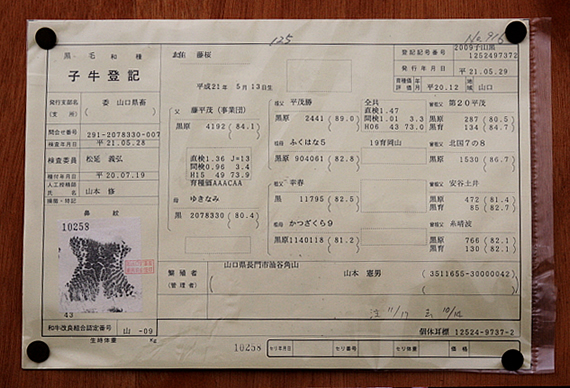 125
No.916
黒毛和種
子牛登記
名号 藤桜
平成21年 5月13日生
登記記号番号
2009子山黒
1252497372
発行年月日
平 21.05.29
育種価評価 年月 平20.12 地域 山口
発行支部名(支所)
委 山口県畜
( )
問合せ番号
291-2078330-007
検査年月日
平 21.05.28
検査委員 松延 義弘
種付年月日
平 20.07.19
人工授精師氏名 山本 修
損徴・特記
鼻紋
10258
43
父 藤平茂(事業団)
黒原 4192 (84.1)
直検1.36 J=13
間検0.96 3.4
H15 49 73.9
育種価AAACAA
母 ゆきなみ
黒 2078330 (80.4)
祖父 平茂勝
黒原 2441 (89.0)
全兵
直検1.47
間検1.01 3.3
H06 43 73.0
祖母 ふくはな5
黒原 904061 (82.8)
19育岡山
祖父 幸春
黒 11795 (82.5)
祖母 かつざくら9
黒原1140118 (81.2)
曽祖父 第20平茂
黒原 287 (80.5)
黒育 134 (84.7)
曽祖父 北国7の8
黒原 1530 (86.7)
曽祖父 安谷土井
黒原 472 (81.4)
黒育 85 (82.7)
曽祖父 糸晴波
黒原 766 (82.1)
黒育 130 (82.1)
繁殖者
(管理者)
山口県長門市油谷角山
山本 憲男 (3511655-30000042)
( )
11/17
10/14
和牛改良組合認定番号 山 -09
個体耳標 12524-9737-2
生時体重 Kg
10258
セリ年月日
セリ番号
セリ体重
価格